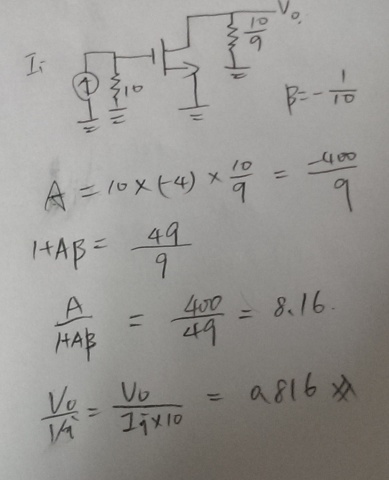 Vo
10/9
Ii
10
β = - 1/10
A = 10 × (-4) × 10/9 = -400/9
1+Aβ = 49/9
A/1+Aβ = 400/49 = 8.16.
Vo/Vi = Vo/Ii×10 = 0.816